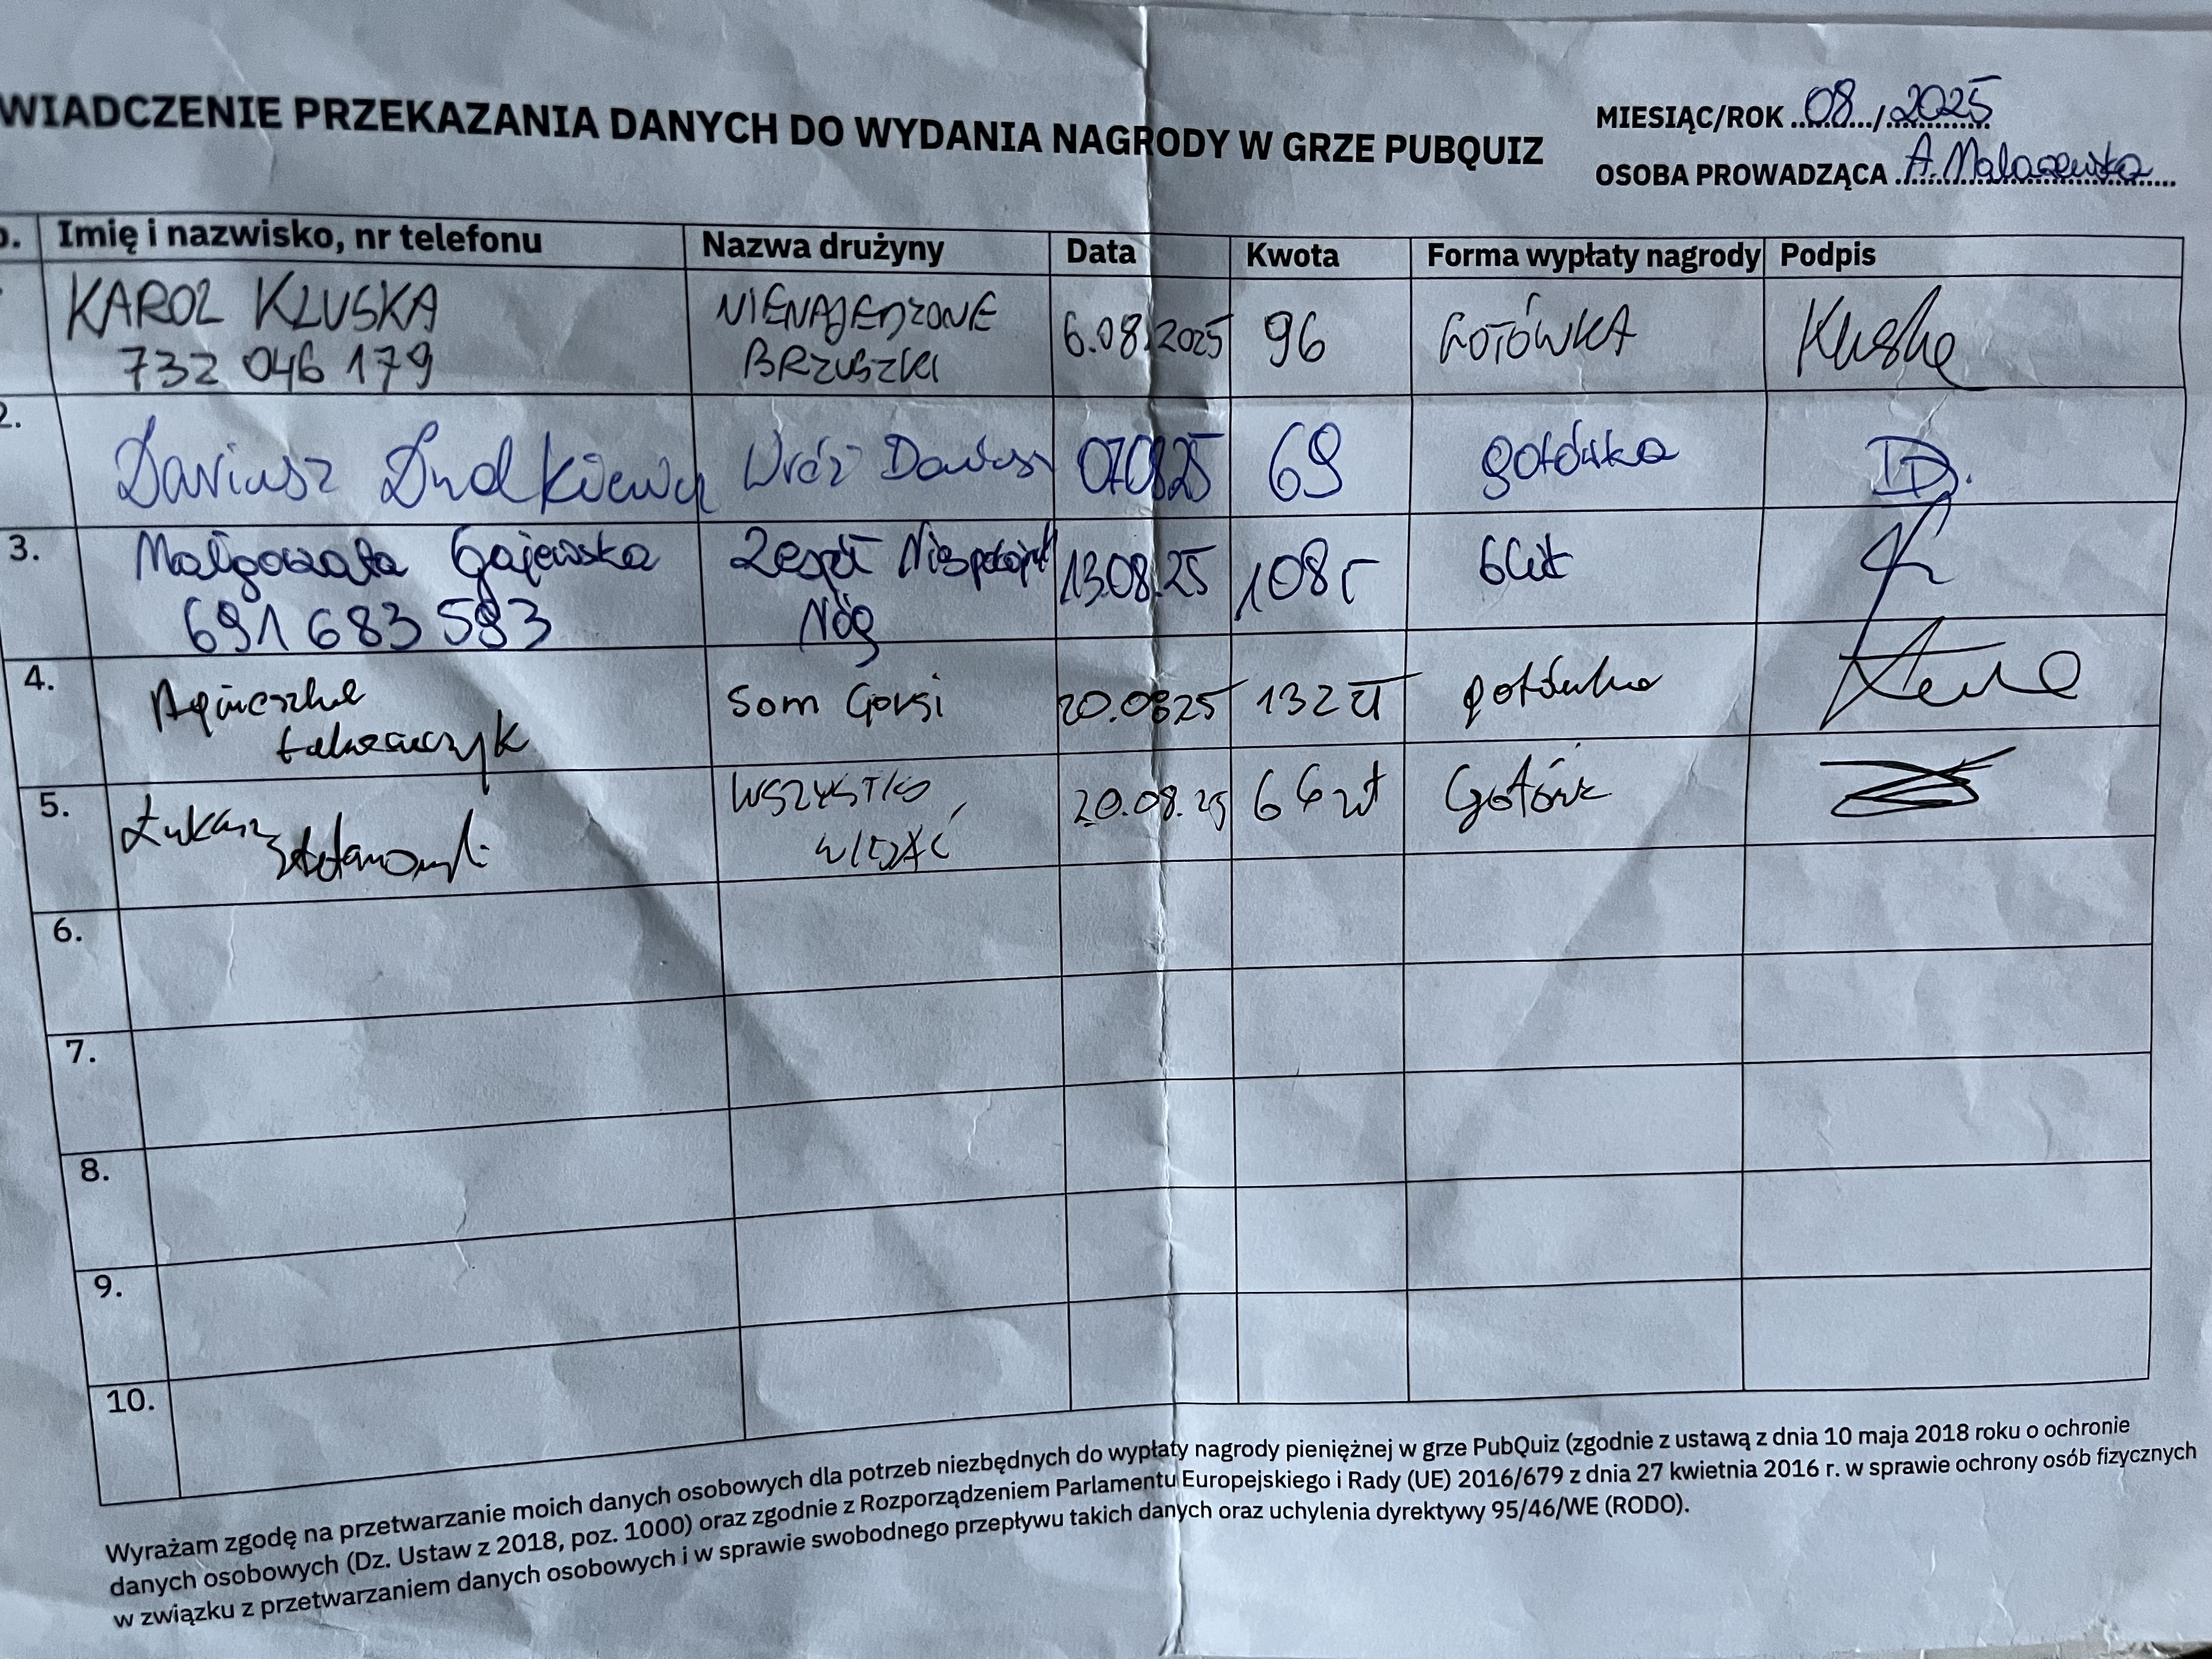 WIADCZENIE PRZEKAZANIA DANYCH DO WYDANIA NAGRODY W GRZE PUBQUIZ
MIESIĄC/ROK 08/2025
OSOBA PROWADZĄCA A. Malaszewska
p. Imię i nazwisko, nr telefonu Nazwa drużyny Data Kwota Forma wypłaty nagrody Podpis
KAROL KLUSKA NIENAJEDZONE 6.08.2025 96 GOTÓWKA Kluska
732 046 179 BRZUSZKI
2. Dariusz Dudkiewicz Wróż Dariusz 070825 69 gotówka D.
3. Małgorzata Gajewska Zespół Niespokojnych 13.08.25 108
691 683 593 Nóg
4. Agnieszka Som Gorsi 20.0825 132 zł gotówka
5. Łukasz WSZYSTKO 20.08.25 66 zł
WIDAĆ
6.
7.
8.
9.
10.
Wyrażam zgodę na przetwarzanie moich danych osobowych dla potrzeb niezbędnych do wypłaty nagrody pieniężnej w grze PubQuiz (zgodnie z ustawą z dnia 10 maja 2018 roku o ochronie
danych osobowych (Dz. Ustaw z 2018, poz. 1000) oraz zgodnie z Rozporządzeniem Parlamentu Europejskiego i Rady (UE) 2016/679 z dnia 27 kwietnia 2016 r. w sprawie ochrony osób fizycznych
w związku z przetwarzaniem danych osobowych i w sprawie swobodnego przepływu takich danych oraz uchylenia dyrektywy 95/46/WE (RODO).